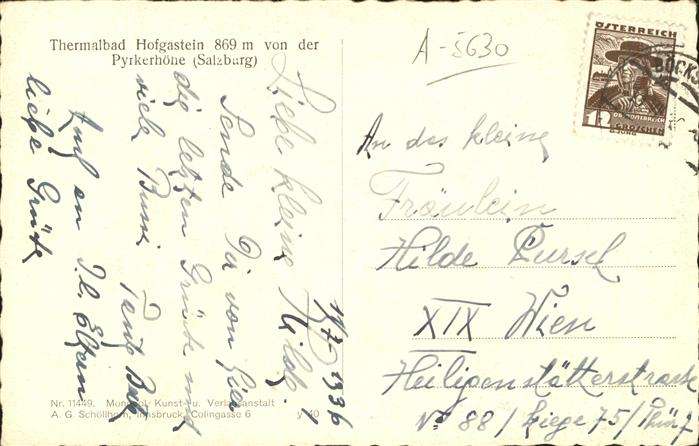 Thermalbad Hofgastein 869 m von der
Pyrkerhöhe (Salzburg)
A-5630
ÖSTERREICH
12
GROSCHEN
BÖCKS
18/7 1936
Liebe kleine Hilde!
Sende Dir von hier
die letzten Grüße und
viele Bussi
Tante
Auch an D. l. Eltern
liebe Grüße
An das kleine
Fräulein
Hilde Pursch
XIX Wien
Heiligenstätterstrasse
No 88 / Stiege 75 / Thür 7
Nr. 11449. Monopol Kunst- u. Verlagsanstalt
A. G. Schöllhorn, Innsbruck, Colingasse 6